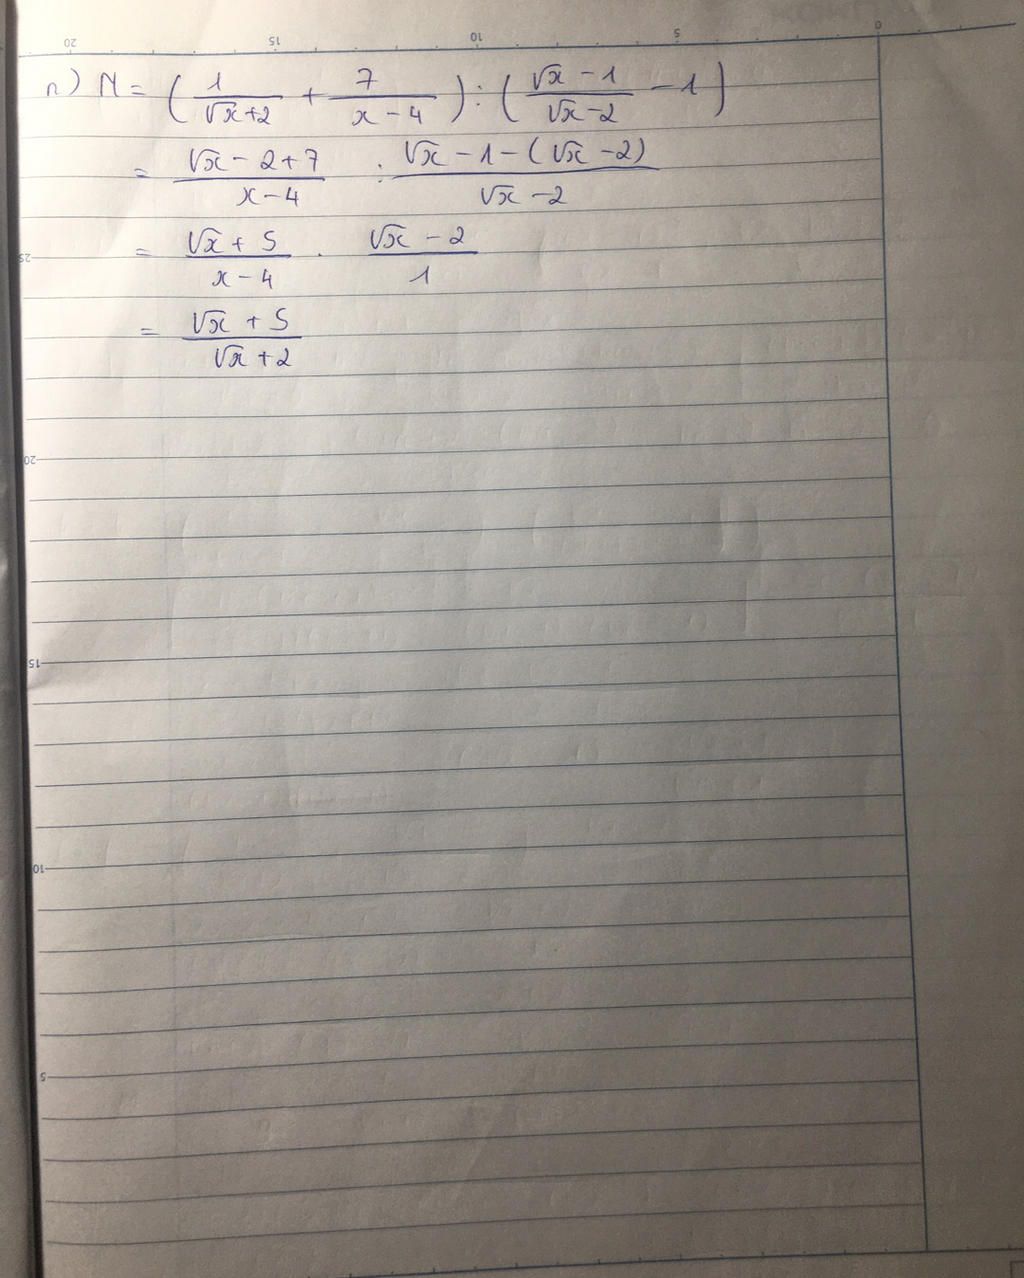 20 15 10 5 0
n) N = ( 1/(√x+2) + 7/(x-4) ) : ( (√x-1)/(√x-2) - 1 )
= (√x-2+7)/(x-4) : (√x-1-(√x-2))/(√x-2)
= (√x+5)/(x-4) . (√x-2)/1
= (√x+5)/(√x+2)
25
20
15
10
5